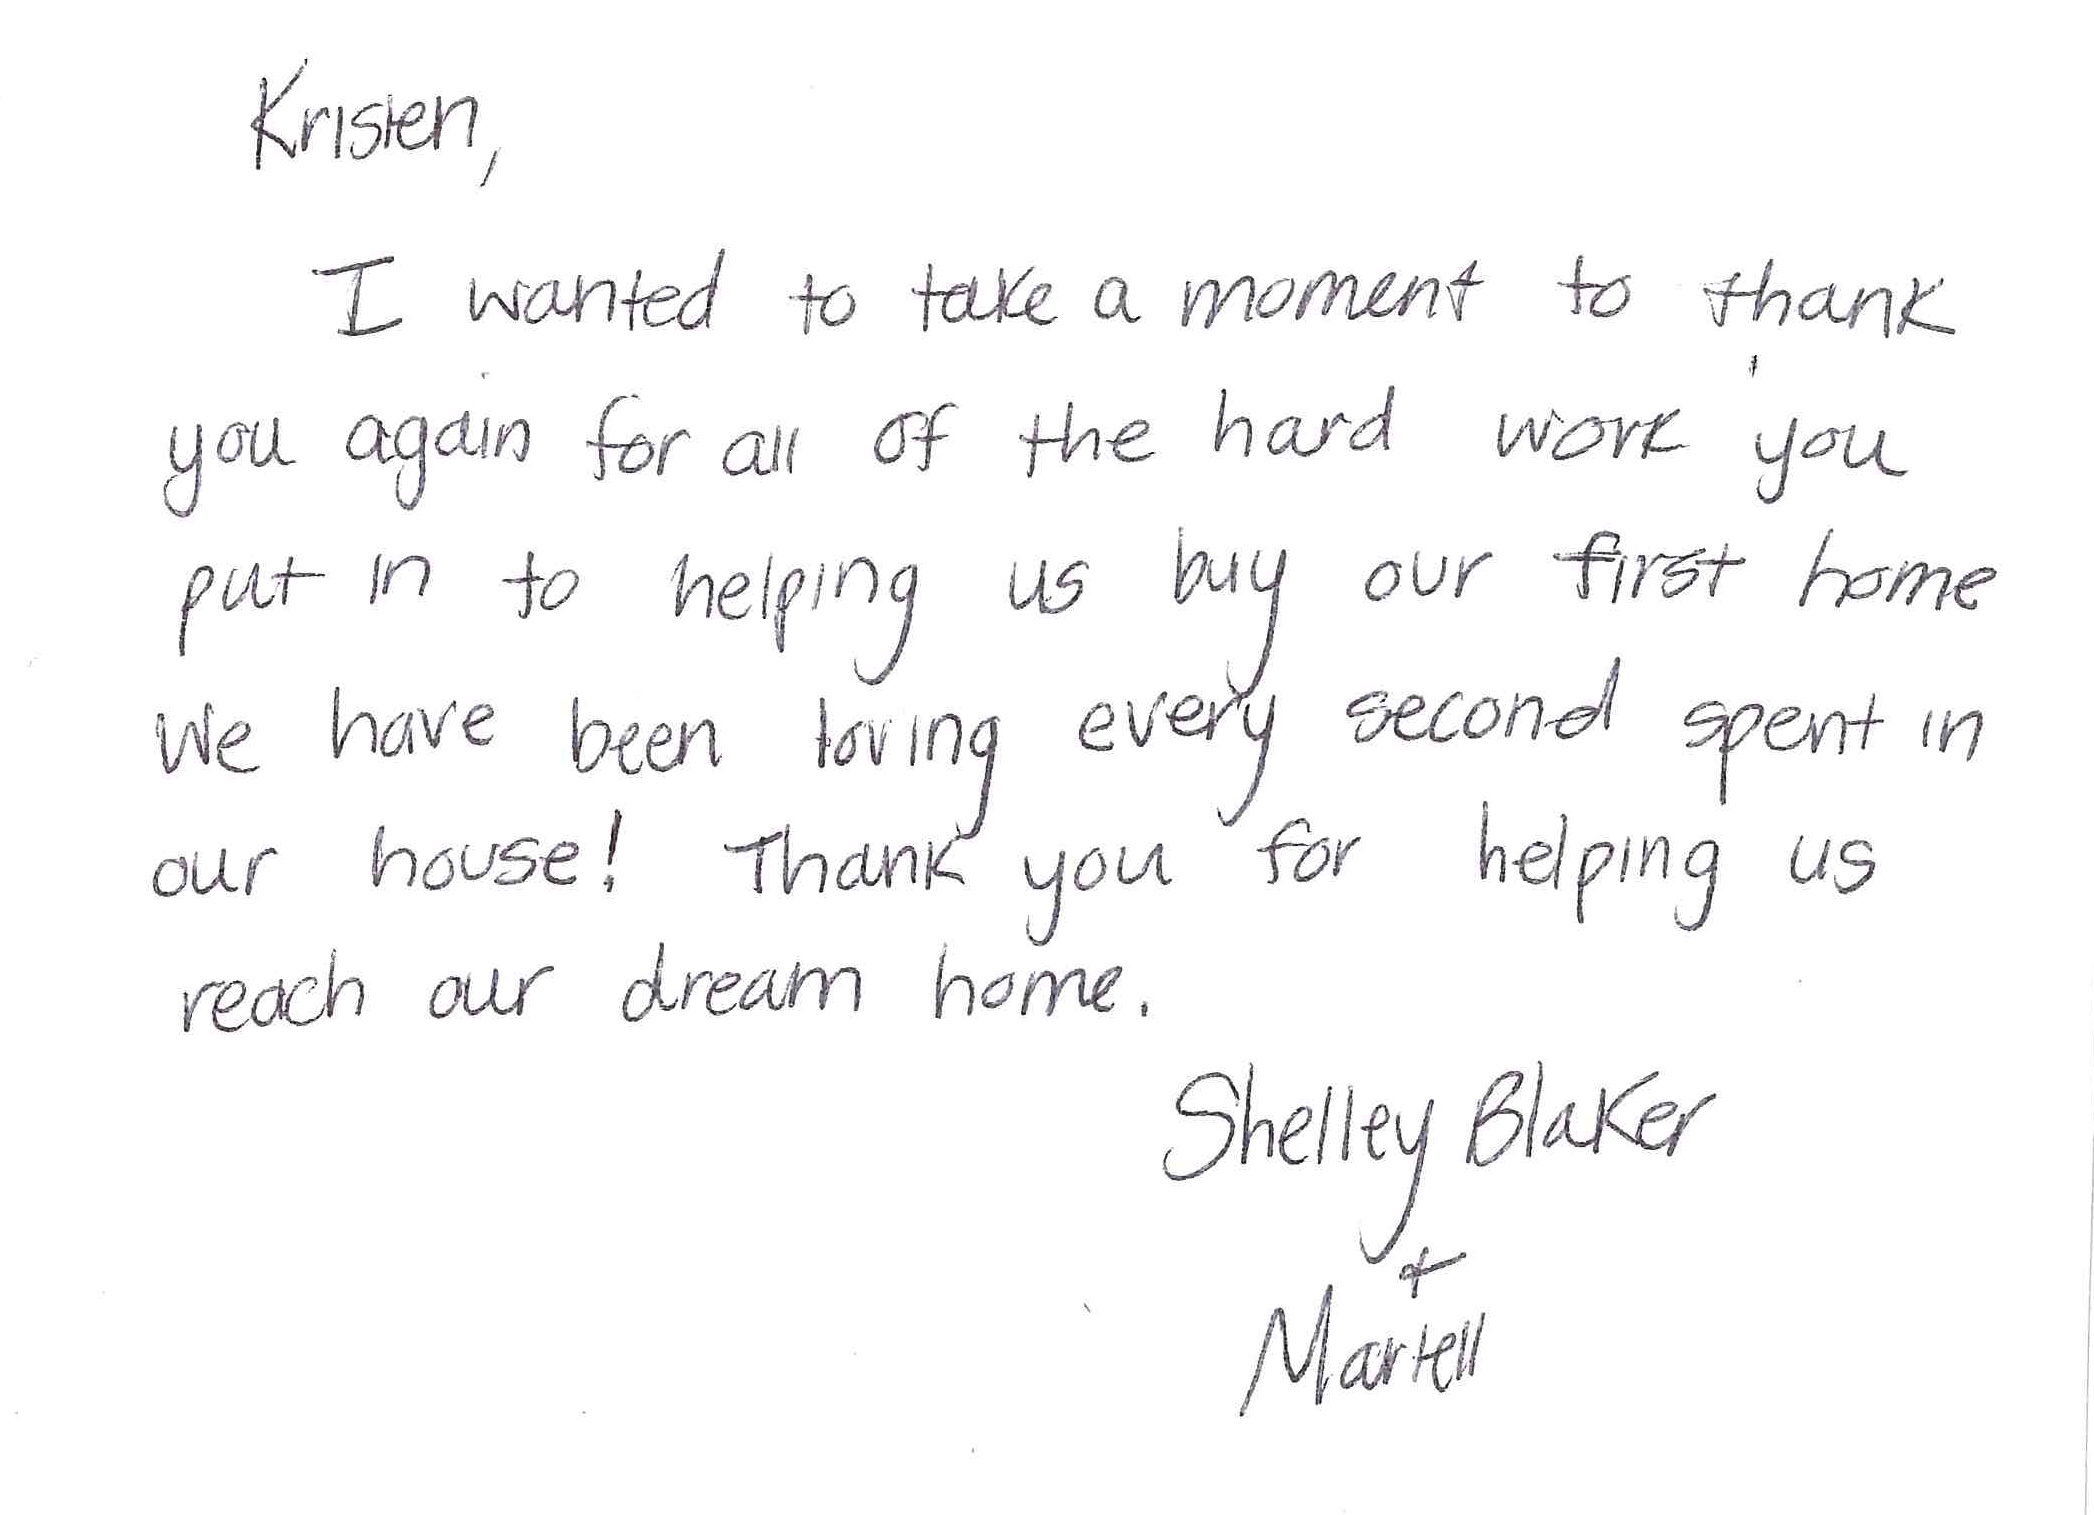 Kristen,
I wanted to take a moment to thank
you again for all of the hard work you
put in to helping us buy our first home
We have been loving every second spent in
our house! Thank you for helping us
reach our dream home.
Shelley Blaker
+
Martell